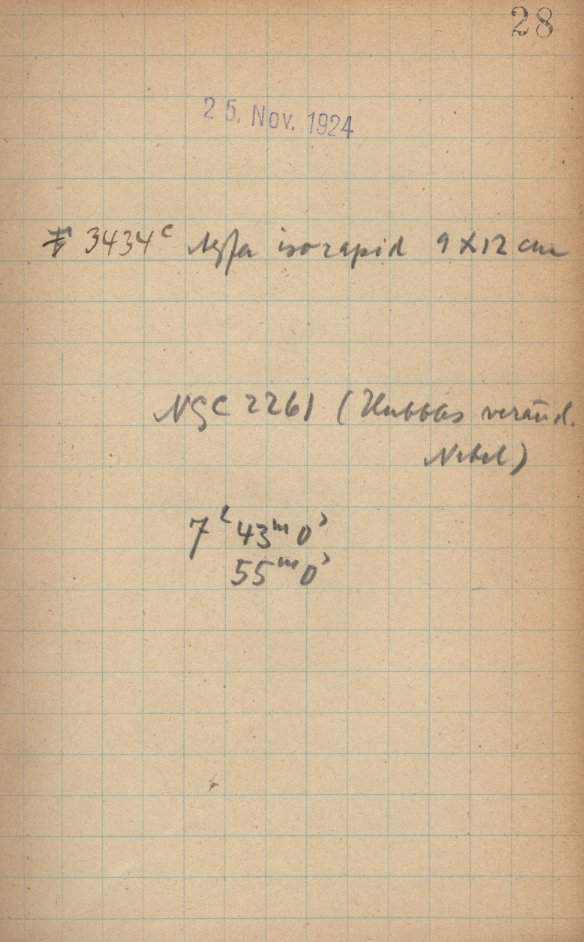 28
25. Nov. 1924
# 3434c Agfa isorapid 9 X 12 cm
NGC 2261 (Hubbles veränd.
Nebel)
7h 43m 0s
55m 0s